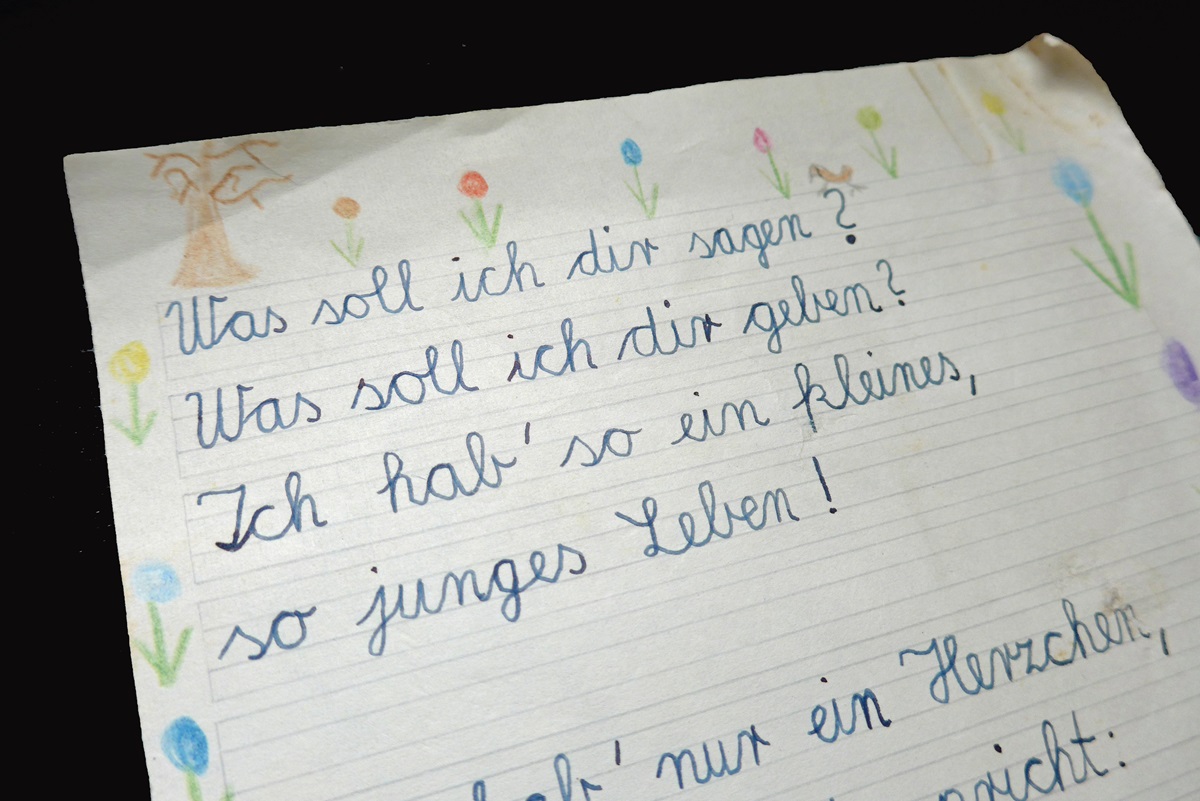 Was soll ich dir sagen?
Was soll ich dir geben?
Ich hab' so ein kleines,
so junges Leben!
hab' nur ein Herzchen,